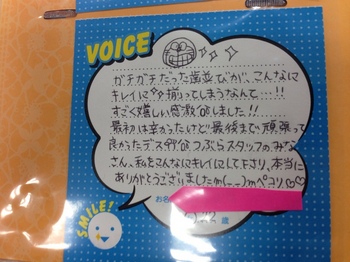 VOICE
ガチガチだった歯並びが、こんなに
キレイに揃ってしまうなんて…!!
すごく嬉しい感激しました!!
最初は辛かったけど最後まで頑張って
良かったデス つぶらスタッフのみな
さん、私をこんなにキレイにして下さり、本当に
ありがとうございましたm(__)mペコリ♡♡
お名
22 歳
SMILE!